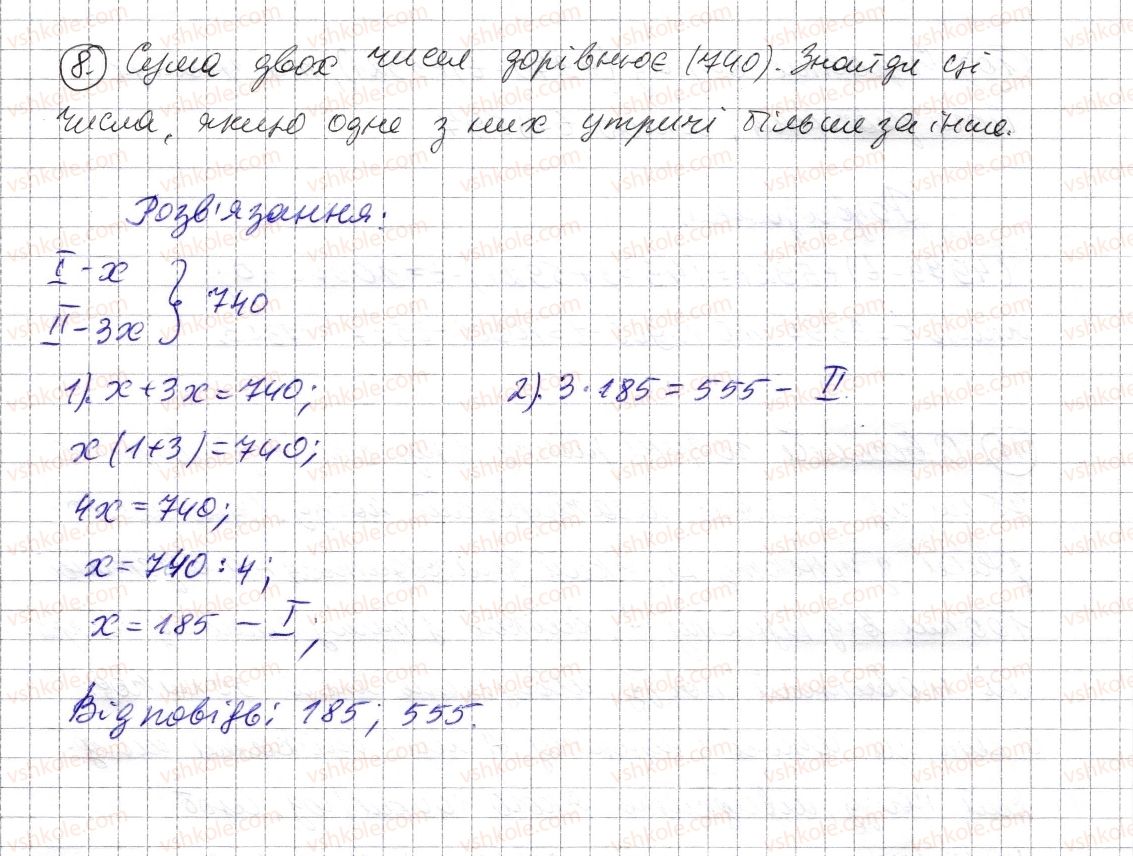 8. Сума двох чисел дорівнює (740). Знайди ці
числа, якщо одне з них утричі більше за інше.
Розв'язання:
I - x
II - 3x } 740
1). x + 3x = 740;
2). 3 · 185 = 555 - II.
x(1+3) = 740;
4x = 740;
x = 740 : 4;
x = 185 - I;
Відповідь: 185; 555.